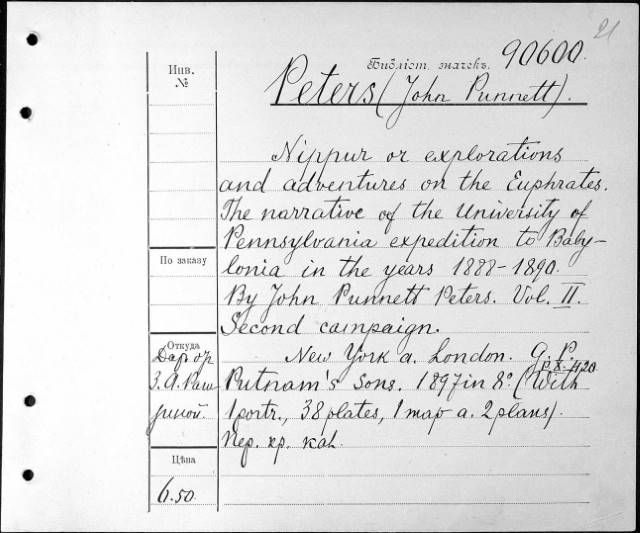 21
Библіот. значекъ. 90600.
Инв.
№
Peters (John Punnett).
Nippur or explorations
and adventures on the Euphrates.
The narrative of the University of
Pennsylvania expedition to Baby-
lonia in the years 1888-1890.
По заказу
By John Punnett Peters. Vol. II.
Second campaign.
Откуда
New York a. London. G. P.
Putnam's Sons. 1897 in 8º. (With
1 portr., 38 plates, 1 map a. 2 plans).
Даръ
З. А. Раг
Пер. кр. кал.
Цѣна
6.50.